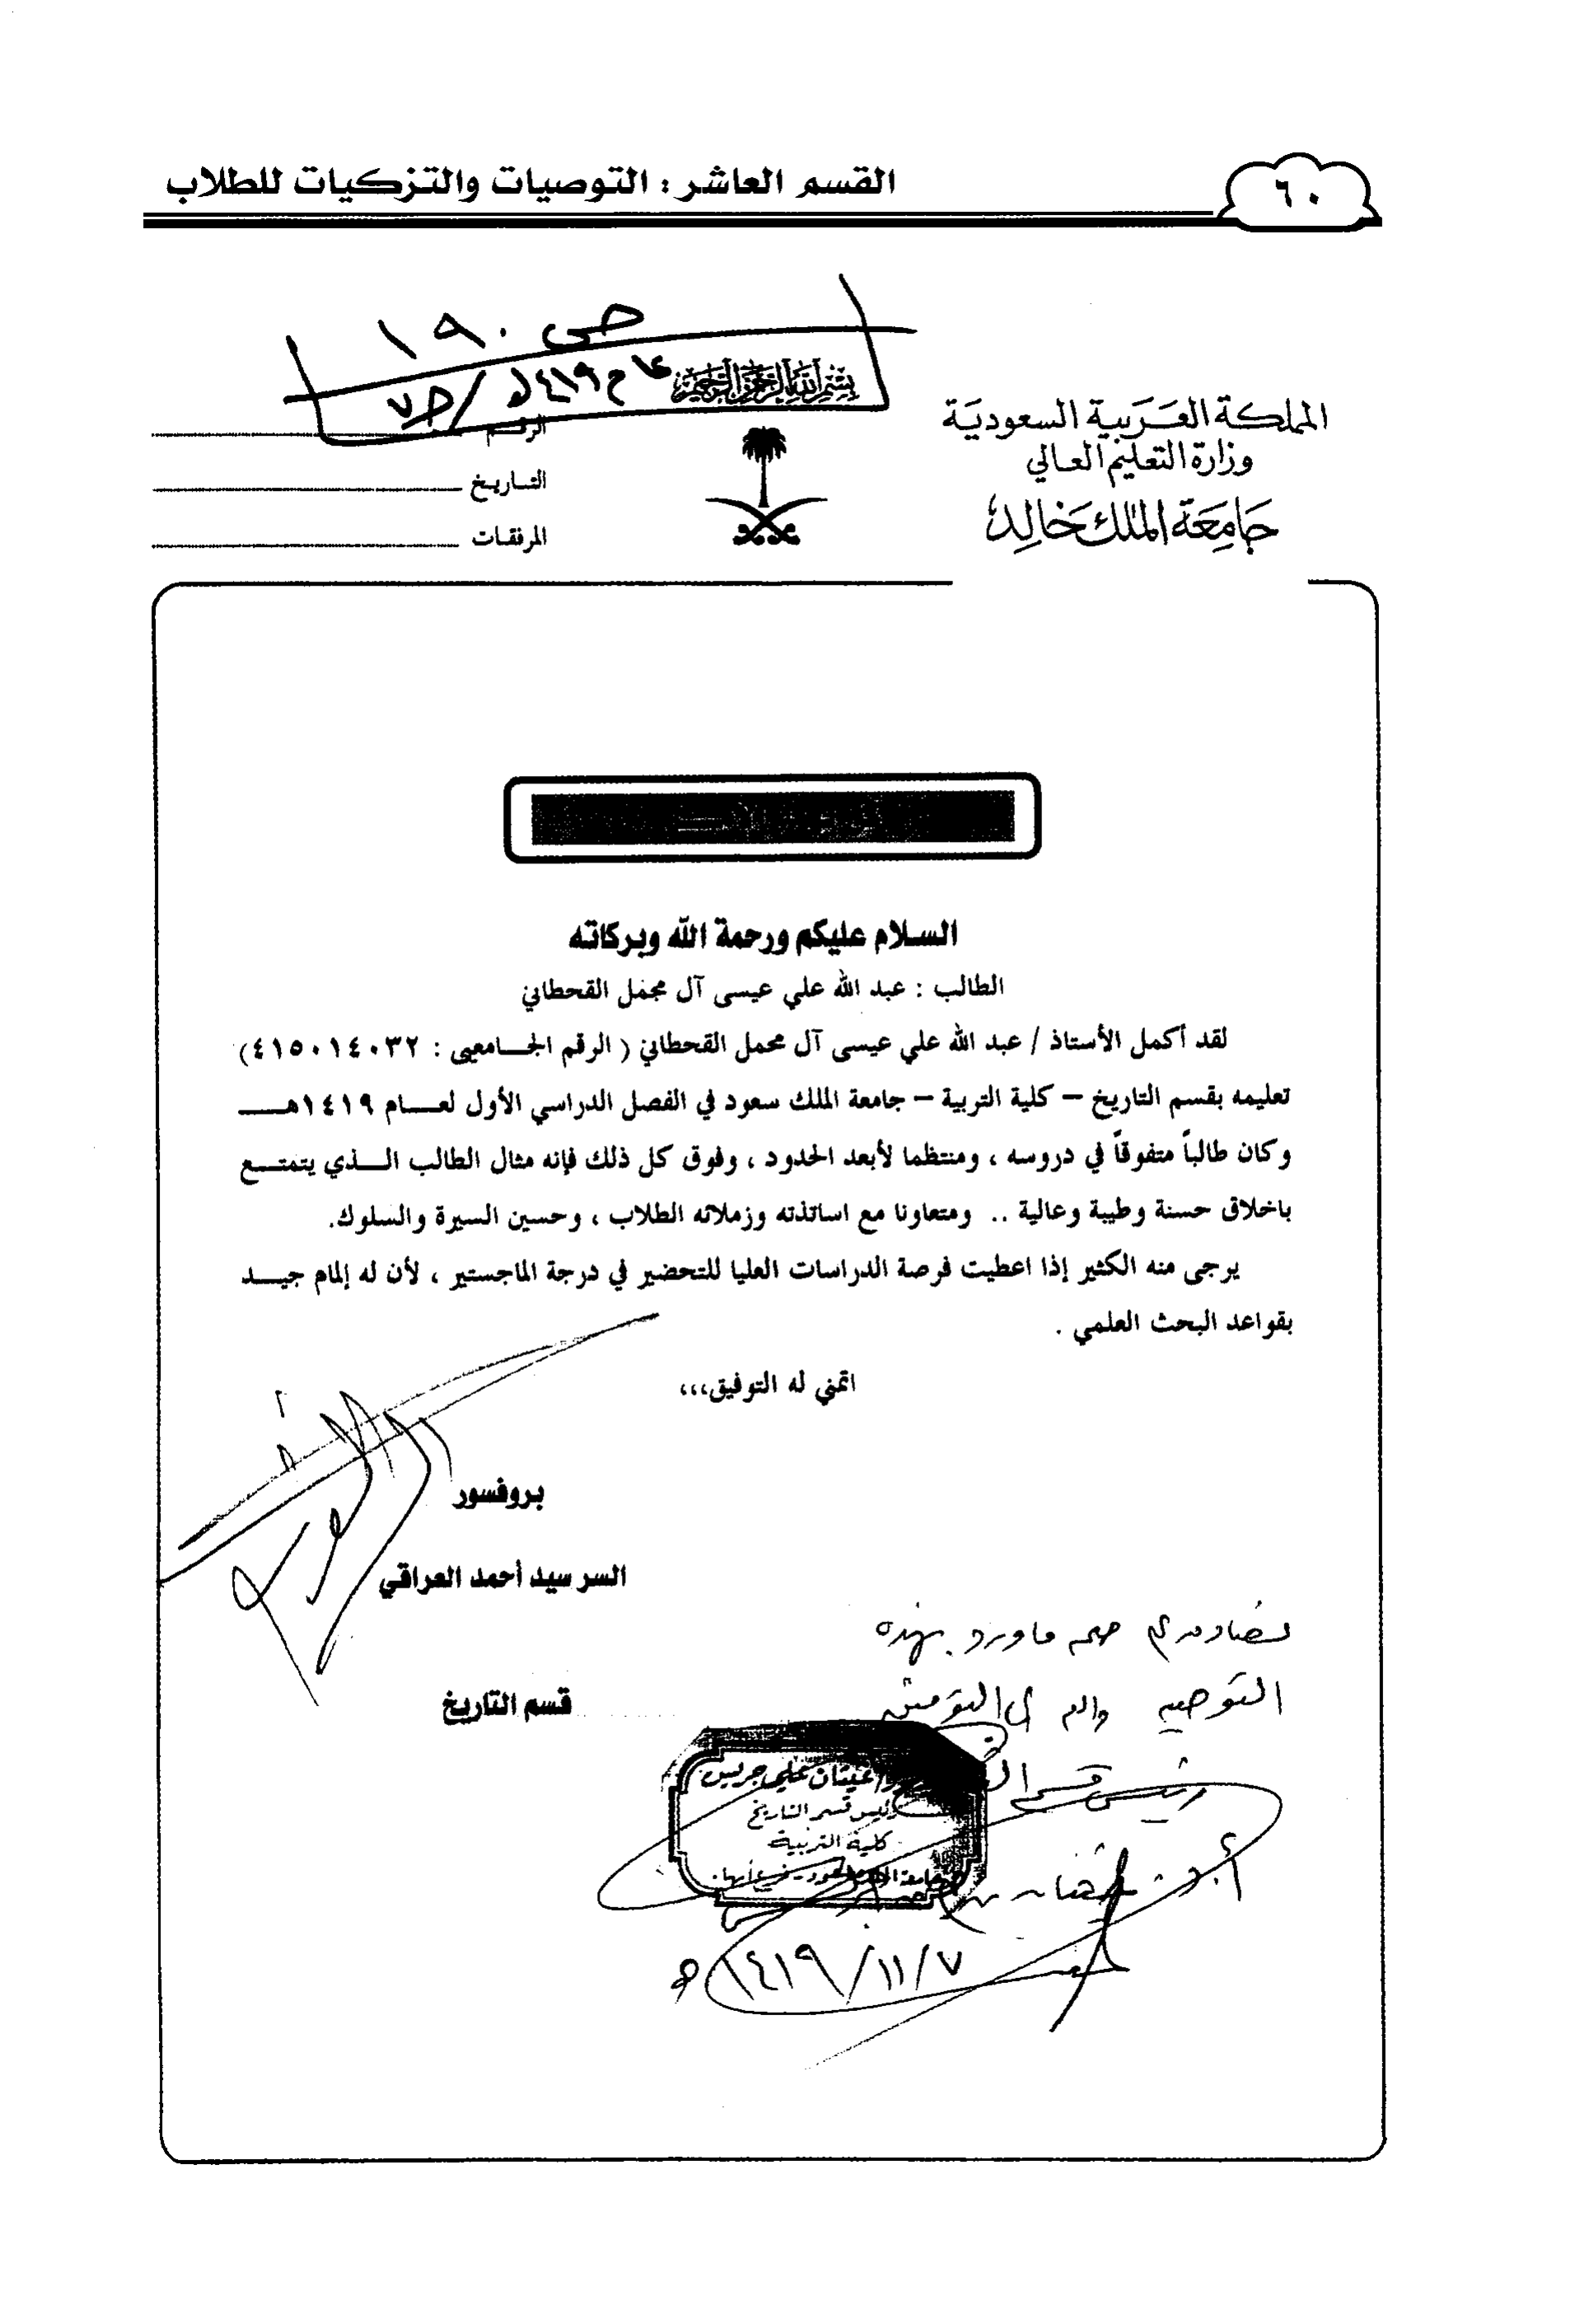 ٦٠
القسم العاشر : التوصيات والتزكيات للطلاب
ص ١٩٠
بسم الله الرحمن الرحيم
المملكة العربية السعودية
وزارة التعليم العالي
جامعة الملك خالد
الرقم
التاريخ
المرفقات
السلام عليكم ورحمة الله وبركاته
الطالب : عبد الله علي عيسى آل مجمل القحطاني
لقد أكمل الأستاذ / عبد الله علي عيسى آل محمل القحطاني ( الرقم الجـامعيى : ٤١٥٠١٤٠٣٢)
تعليمه بقسم التاريخ – كلية التربية – جامعة الملك سعود في الفصل الدراسي الأول لعـام ١٤١٩هـ
وكان طالباً متفوقاً في دروسه ، ومنتظما لأبعد الحدود ، وفوق كل ذلك فإنه مثال الطالب الـذي يتمتـع
باخلاق حسنة وطيبة وعالية .. ومتعاونا مع اساتذته وزملائه الطلاب ، وحسين السيرة والسلوك.
يرجى منه الكثير إذا اعطيت فرصة الدراسات العليا للتحضير في درجة الماجستير ، لأن له إلمام جيـد
بقواعد البحث العلمي .
اتمني له التوفيق،،،
بروفسور
السر سيد أحمد العراقي
قسم التاريخ
ما ورد بهذه
التوصيه
رئيس قسم
علي جريس
رئيس قسم التاريخ
كلية التربية
١٤١٩/١١/٧ هـ